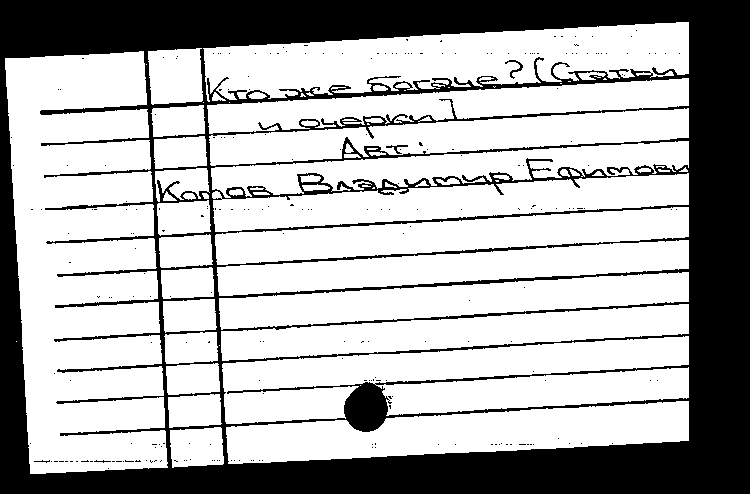 Кто же богаче? (Статьи
и очерки]
Авт:
Котов, Владимир Ефимови